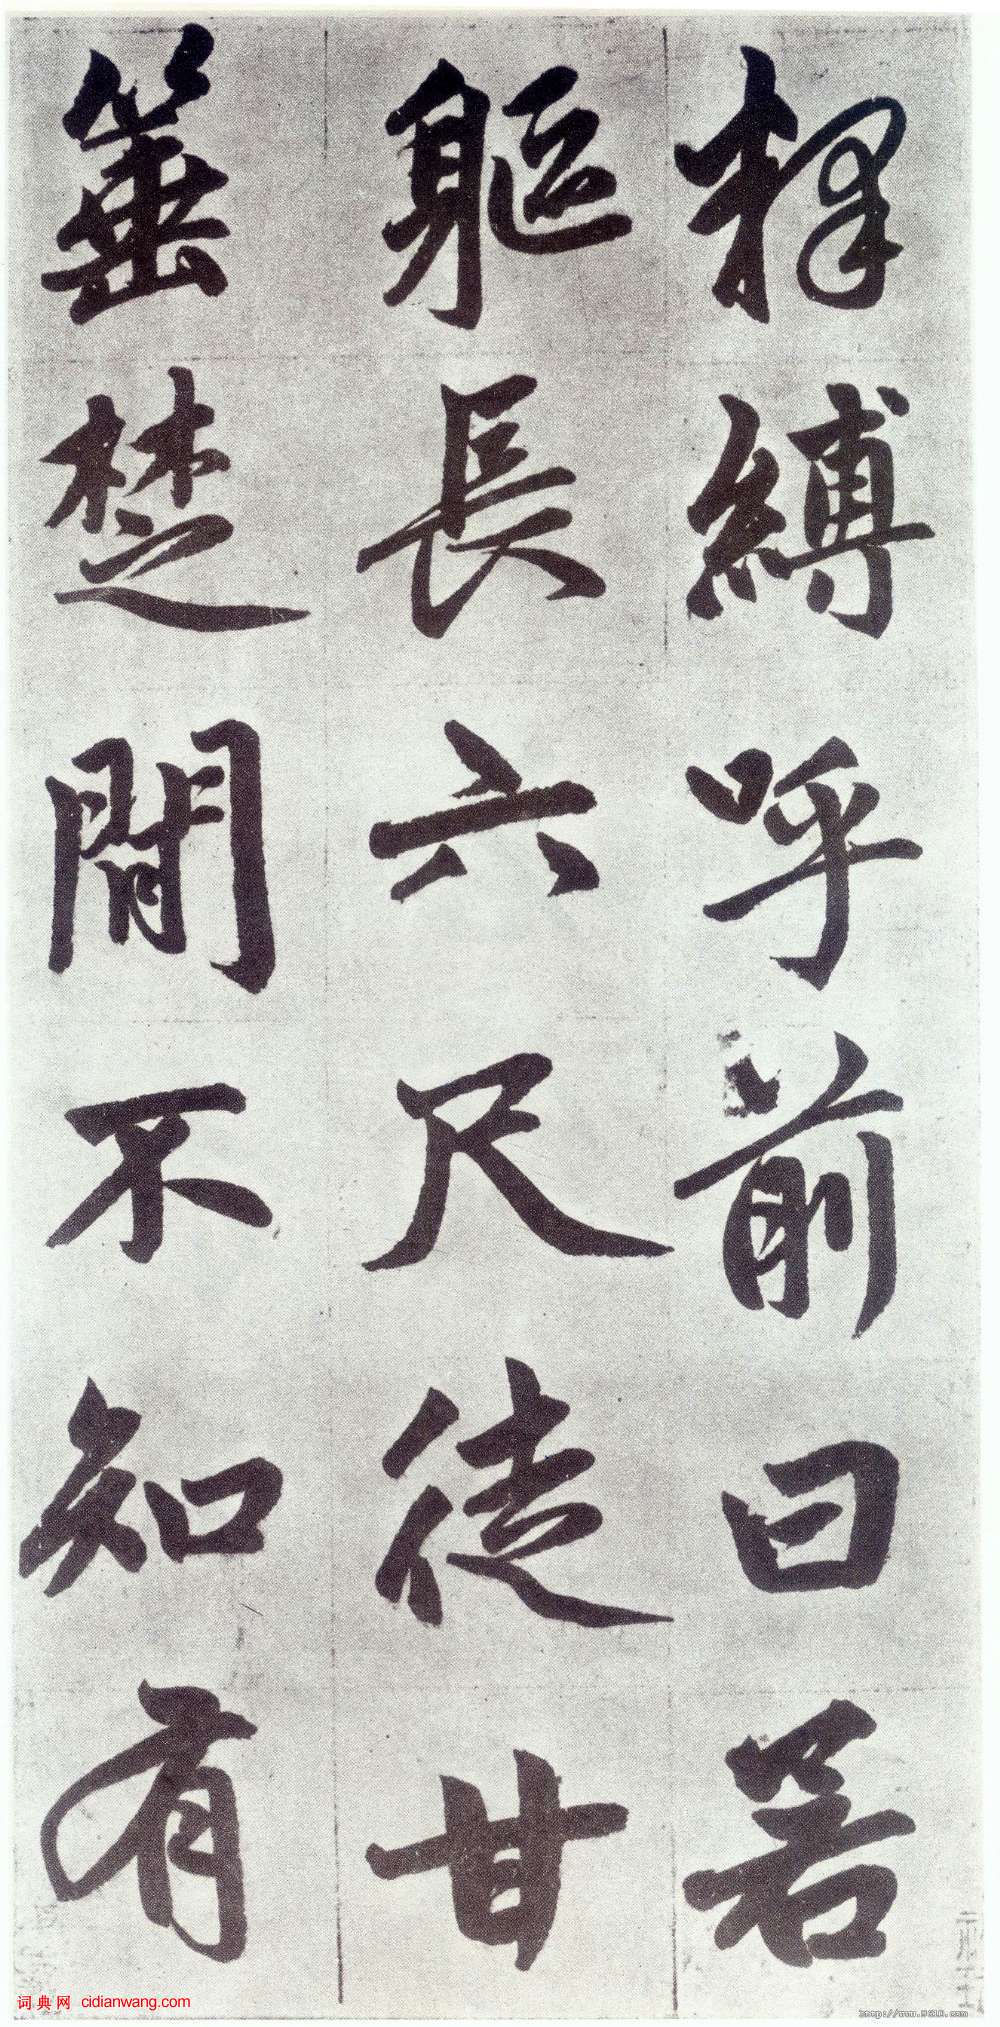 释缚呼前曰若
軀長六尺徒甘
箠楚間不知有
词典网 cidianwang.com